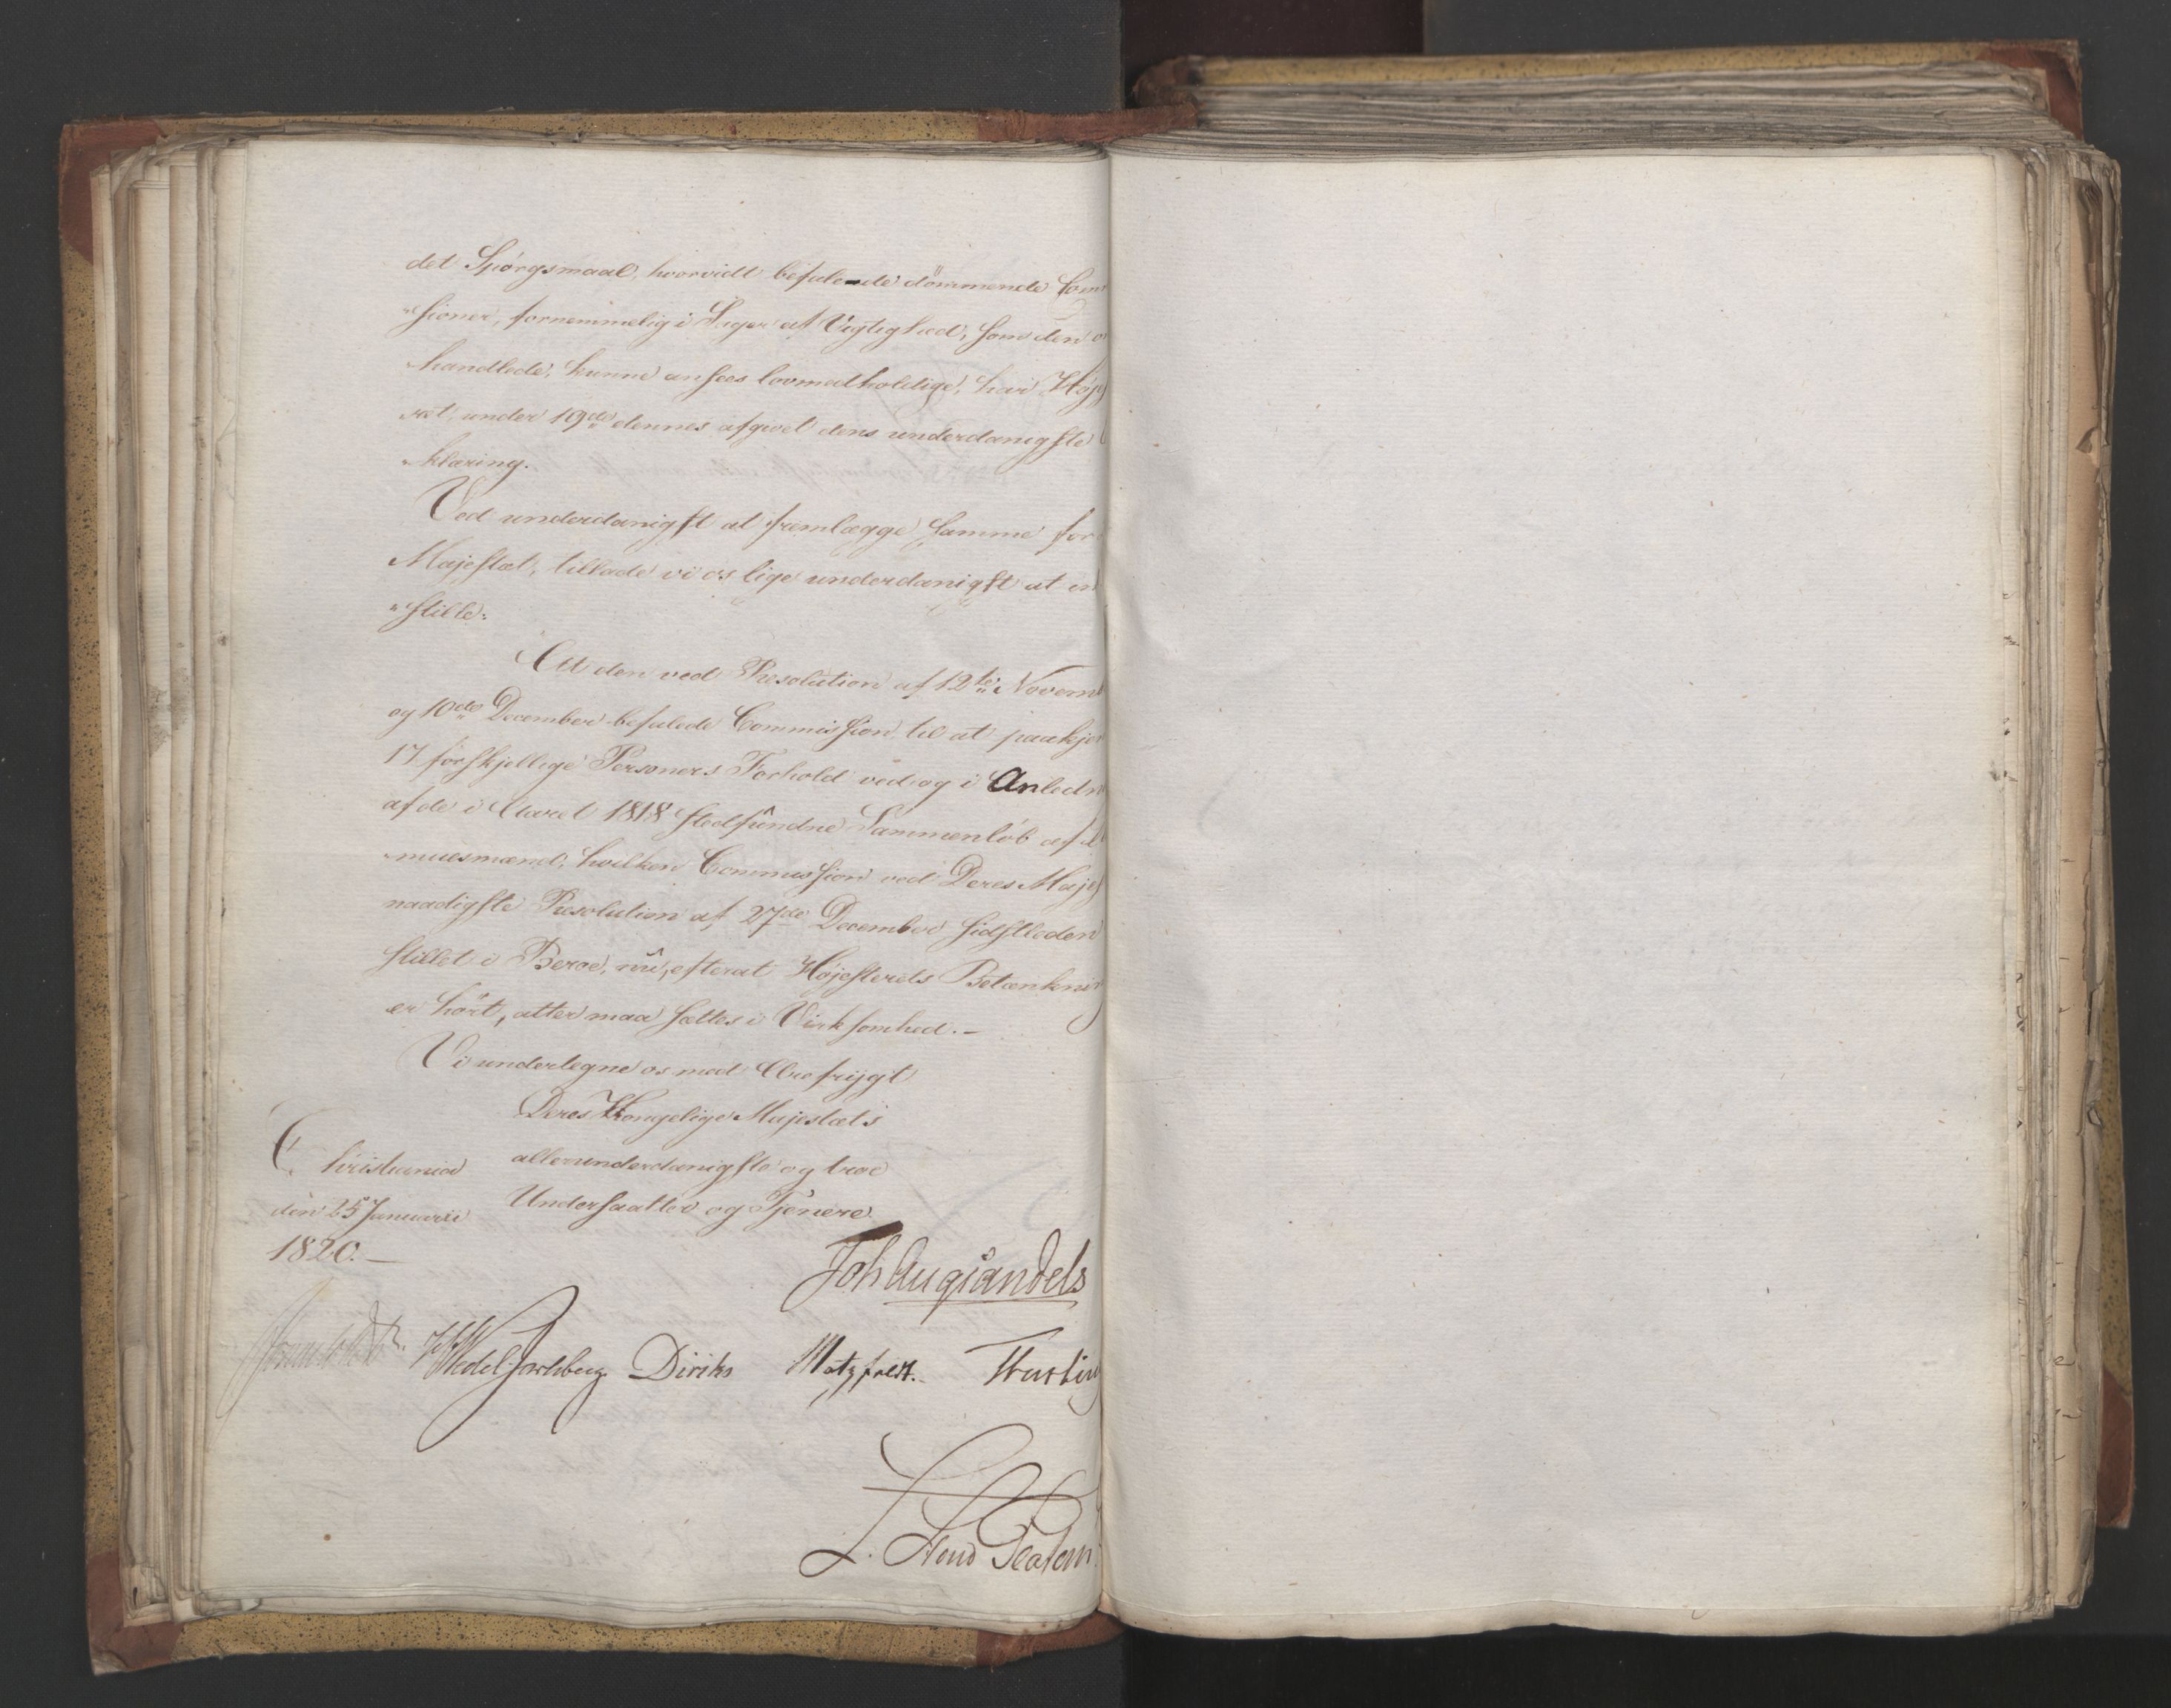 det Spørgsmaal, hvorvidt befalede dömmende Com
"sioner, fornemmelig i Sager af Vigtighed, som den
handlede, kunne ansees lovmedholdige, har Høje
ret, under 19de dennes afgivet dens underdanigste
"klæring.
Ved underdanigst at fremlægge samme for
Majestæt, tillade vi os lige underdanigst at in
"stille:
At den ved Resolution af 12te Novemb
og 10de December befalede Commission til at paakje
17 forskjellige Personers Forhold ved og i Anledn
af de i Aaret 1818 stedfundne Sammenløb af Al
"muesmænd, hvilken Commission ved Deres Maje
naadigste Resolution af 27de December sidstleden
stillet i Beroe, nu, efterat Højesterets Betænkni
er hört, atter maa sættes i Virksomhed. –
Vi undertegne os med Ærefrygt
Deres Kongelige Majestæts
Christiania allerunderdanigste og troe
den 25 Januarii Undersaatter og Tjenere.
1820. –
Joh Aug Sandels
Sommerhielm. HWedel Jarlsberg Diriks Motzfeldt. Fasting
L. Stoud Platou